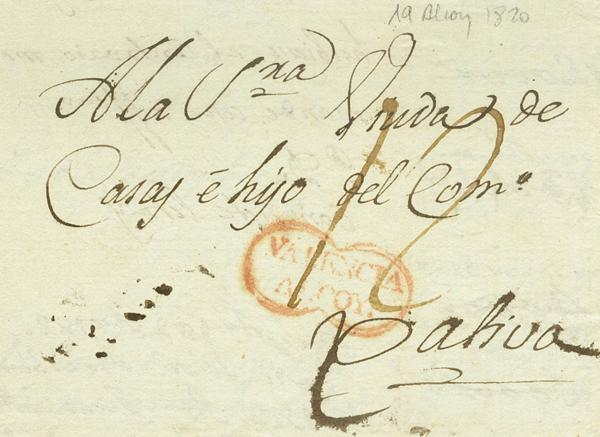 19 Alcoy 1820
A la Sra Viuda de
Casas é hijo del Como
12
VALENCIA
ALCOY.
Xativa